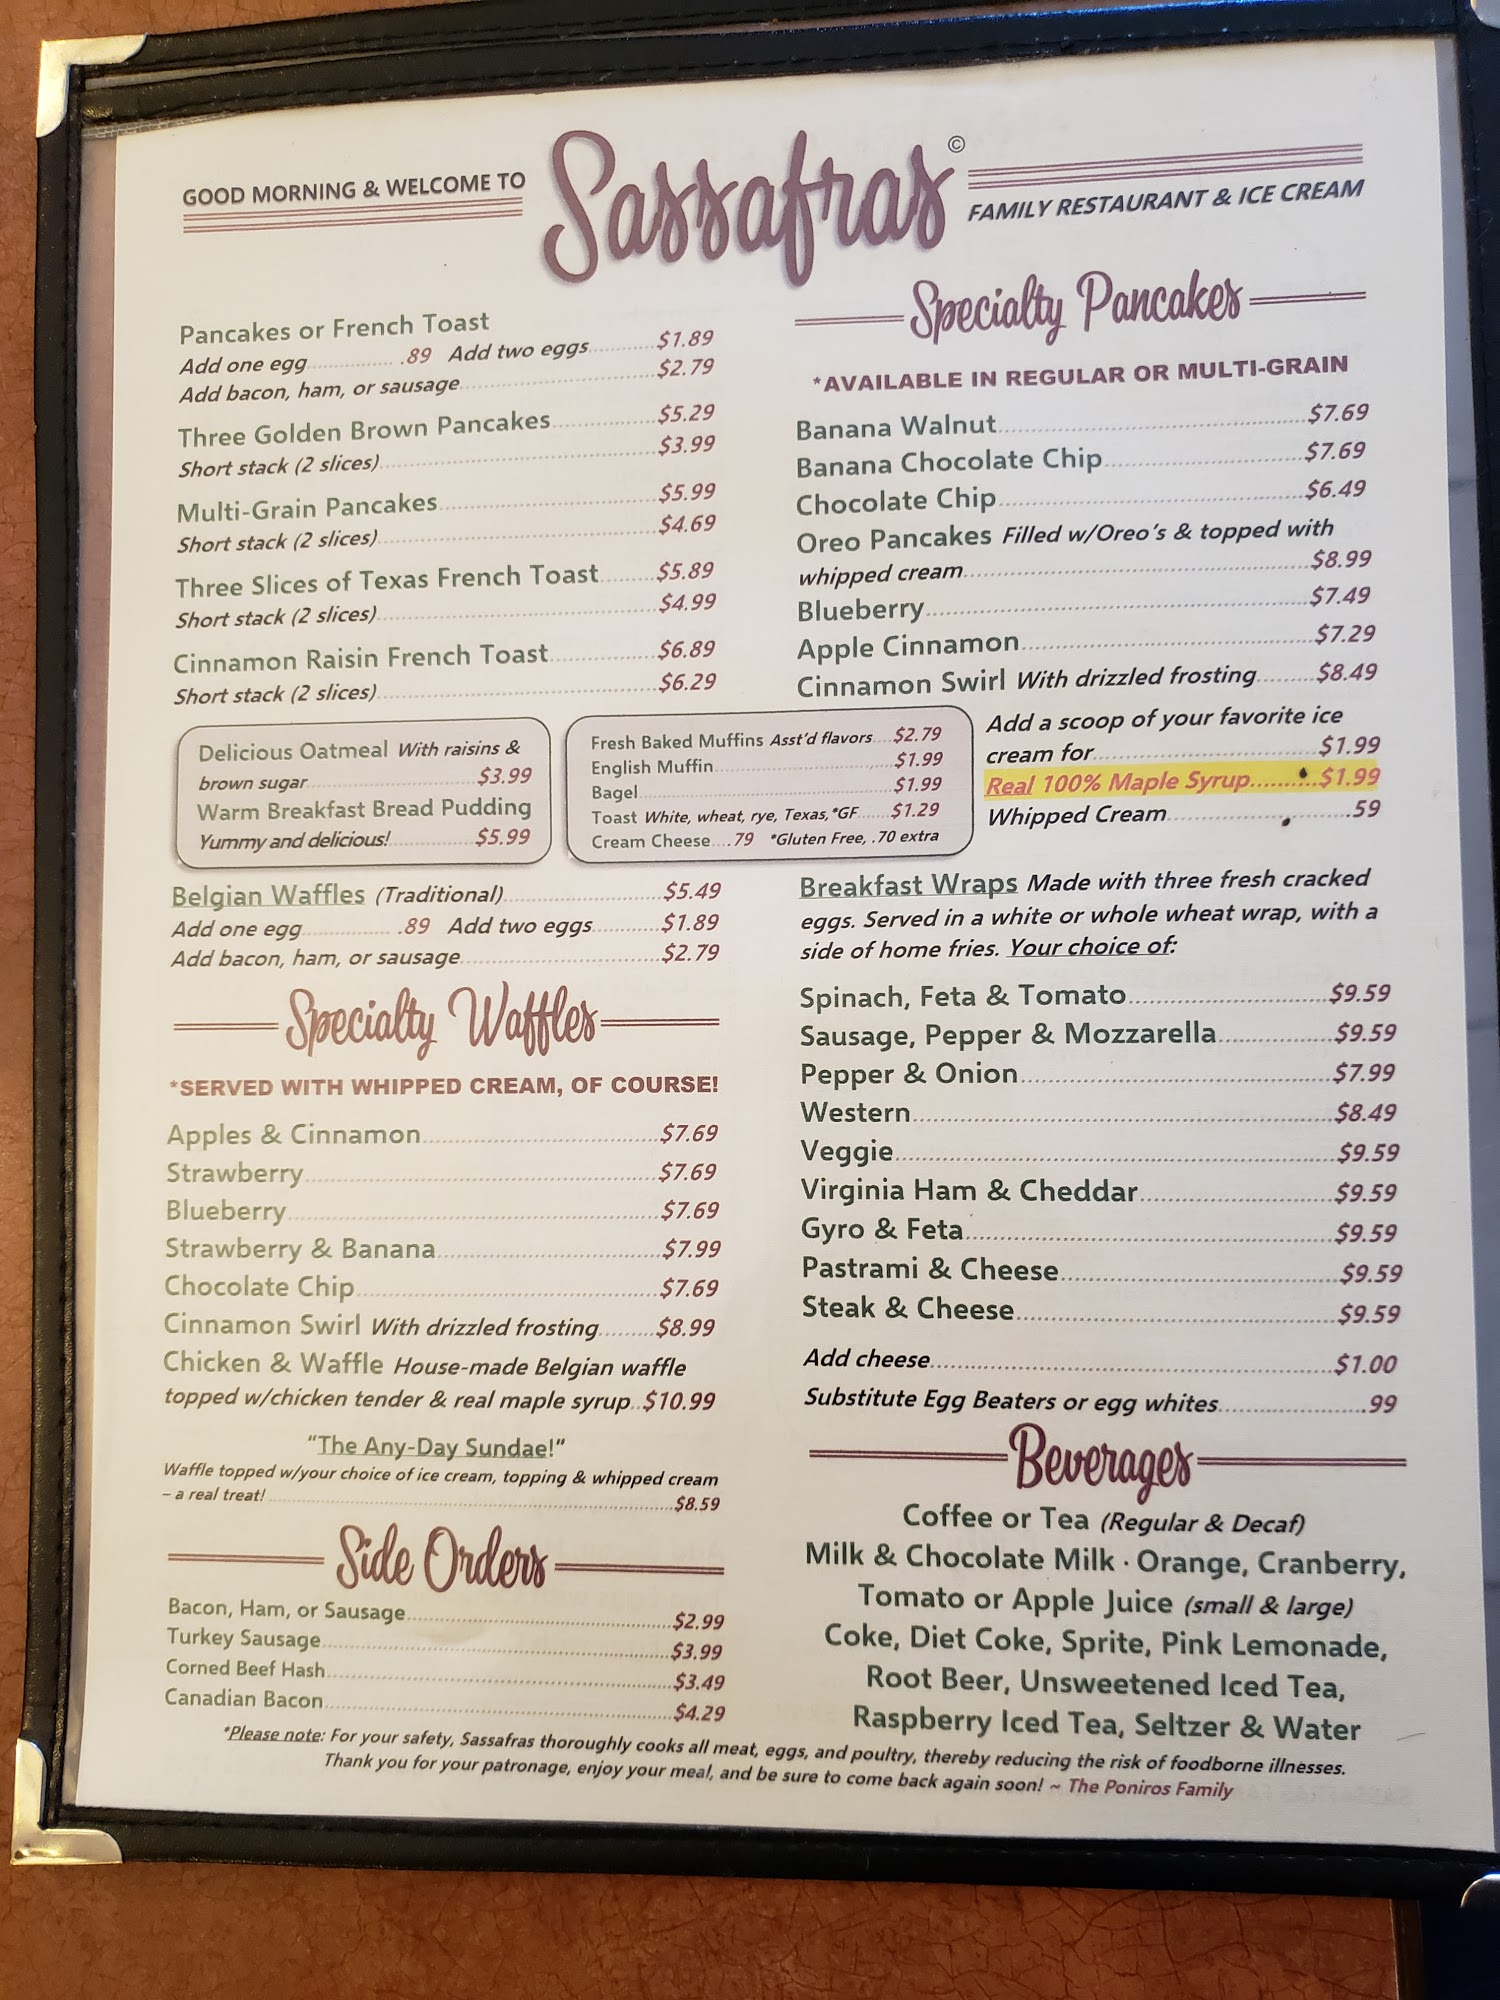 GOOD MORNING & WELCOME TO
Sassafras©
FAMILY RESTAURANT & ICE CREAM
Pancakes or French Toast
Add one egg.............. .89 Add two eggs...........$1.89
Add bacon, ham, or sausage..................................$2.79
Three Golden Brown Pancakes.................$5.29
Short stack (2 slices)..............................................$3.99
Multi-Grain Pancakes....................................$5.99
Short stack (2 slices)..............................................$4.69
Three Slices of Texas French Toast.........$5.89
Short stack (2 slices)..............................................$4.99
Cinnamon Raisin French Toast.................$6.89
Short stack (2 slices)..............................................$6.29
Delicious Oatmeal With raisins &
brown sugar............................$3.99
Warm Breakfast Bread Pudding
Yummy and delicious!..............$5.99
Fresh Baked Muffins Asst'd flavors....$2.79
English Muffin.....................................$1.99
Bagel.....................................................$1.99
Toast White, wheat, rye, Texas,*GF.......$1.29
Cream Cheese....79 *Gluten Free, .70 extra
Belgian Waffles (Traditional)..........................$5.49
Add one egg.............. .89 Add two eggs...........$1.89
Add bacon, ham, or sausage.................................$2.79
Specialty Waffles
*SERVED WITH WHIPPED CREAM, OF COURSE!
Apples & Cinnamon.......................................$7.69
Strawberry.........................................................$7.69
Blueberry............................................................$7.69
Strawberry & Banana.....................................$7.99
Chocolate Chip.................................................$7.69
Cinnamon Swirl With drizzled frosting.........$8.99
Chicken & Waffle House-made Belgian waffle
topped w/chicken tender & real maple syrup..$10.99
"The Any-Day Sundae!"
Waffle topped w/your choice of ice cream, topping & whipped cream
– a real treat!..........................................................................$8.59
Side Orders
Bacon, Ham, or Sausage..............................................$2.99
Turkey Sausage.............................................................$3.99
Corned Beef Hash.........................................................$3.49
Canadian Bacon............................................................$4.29
Specialty Pancakes
*AVAILABLE IN REGULAR OR MULTI-GRAIN
Banana Walnut...................................................$7.69
Banana Chocolate Chip.................................$7.69
Chocolate Chip...................................................$6.49
Oreo Pancakes Filled w/Oreo's & topped with
whipped cream.......................................................$8.99
Blueberry..............................................................$7.49
Apple Cinnamon................................................$7.29
Cinnamon Swirl With drizzled frosting.........$8.49
Add a scoop of your favorite ice
cream for...................................$1.99
Real 100% Maple Syrup..........$1.99
Whipped Cream............................59
Breakfast Wraps Made with three fresh cracked
eggs. Served in a white or whole wheat wrap, with a
side of home fries. Your choice of:
Spinach, Feta & Tomato.................................$9.59
Sausage, Pepper & Mozzarella...................$9.59
Pepper & Onion...................................................$7.99
Western....................................................................$8.49
Veggie.......................................................................$9.59
Virginia Ham & Cheddar................................$9.59
Gyro & Feta............................................................$9.59
Pastrami & Cheese.............................................$9.59
Steak & Cheese....................................................$9.59
Add cheese..................................................................$1.00
Substitute Egg Beaters or egg whites.......................99
Beverages
Coffee or Tea (Regular & Decaf)
Milk & Chocolate Milk · Orange, Cranberry,
Tomato or Apple Juice (small & large)
Coke, Diet Coke, Sprite, Pink Lemonade,
Root Beer, Unsweetened Iced Tea,
Raspberry Iced Tea, Seltzer & Water
*Please note: For your safety, Sassafras thoroughly cooks all meat, eggs, and poultry, thereby reducing the risk of foodborne illnesses.
Thank you for your patronage, enjoy your meal, and be sure to come back again soon! ~ The Poniros Family